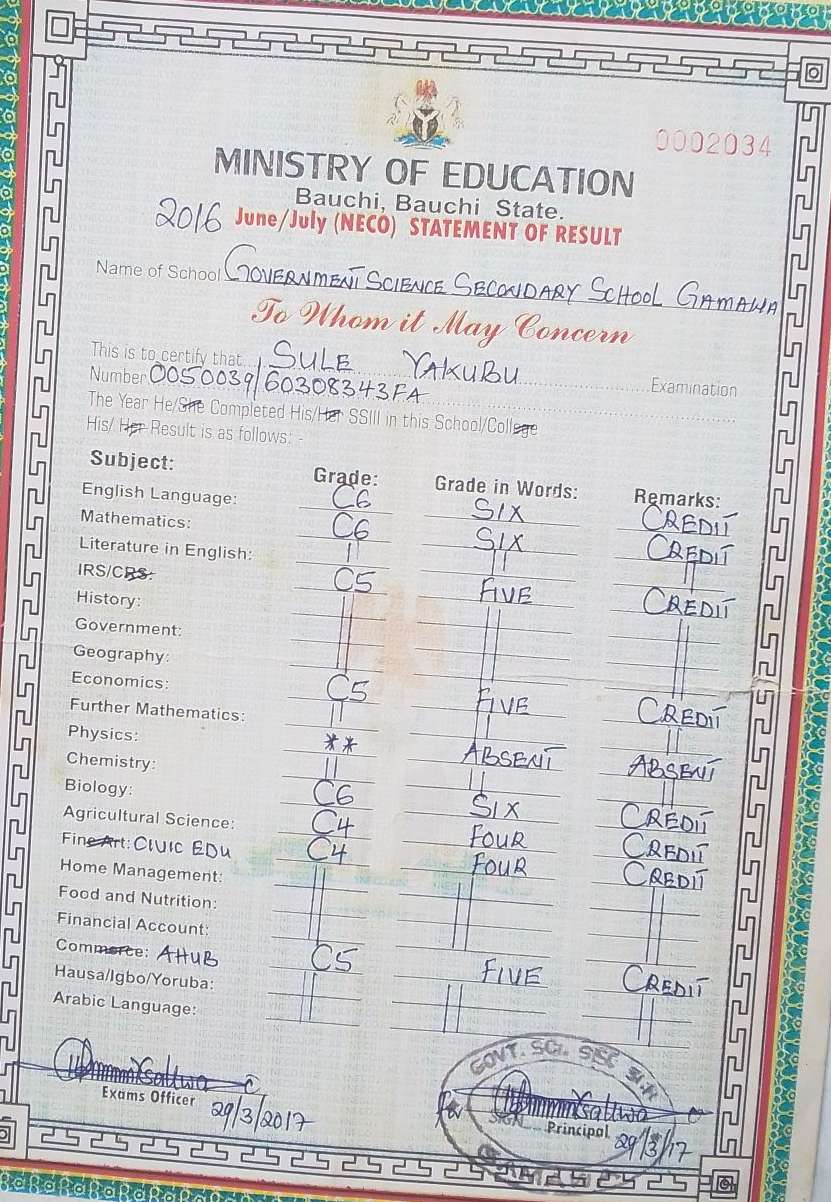 0002034
MINISTRY OF EDUCATION
Bauchi, Bauchi State.
2016 June/July (NECO) STATEMENT OF RESULT
Name of School GOVERNMENT SCIENCE SECONDARY SCHOOL GAMAWA
To Whom it May Concern
This is to certify that SULE YAKUBU
Number 0050039/60308343FA Examination
The Year He/She Completed His/Her SSIII in this School/College
His/ Her Result is as follows: -
Subject: Grade: Grade in Words: Remarks:
English Language: C6 SIX CREDIT
Mathematics: C6 SIX CREDIT
Literature in English: 11 11 11
IRS/CRS: C5 FIVE CREDIT
History:
Government:
Geography:
Economics: C5 FIVE CREDIT
Further Mathematics: 11 11 11
Physics: ** ABSENT ABSENT
Chemistry: 11 11 11
Biology: C6 SIX CREDIT
Agricultural Science: C4 FOUR CREDIT
Fine Art: CIVIC EDU C4 FOUR CREDIT
Home Management:
Food and Nutrition:
Financial Account:
Commerce: AHUB C5 FIVE CREDIT
Hausa/Igbo/Yoruba:
Arabic Language:
Exams Officer
29/3/2017
GOVT. SCI.
for
SIGN
Principal 29/3/17